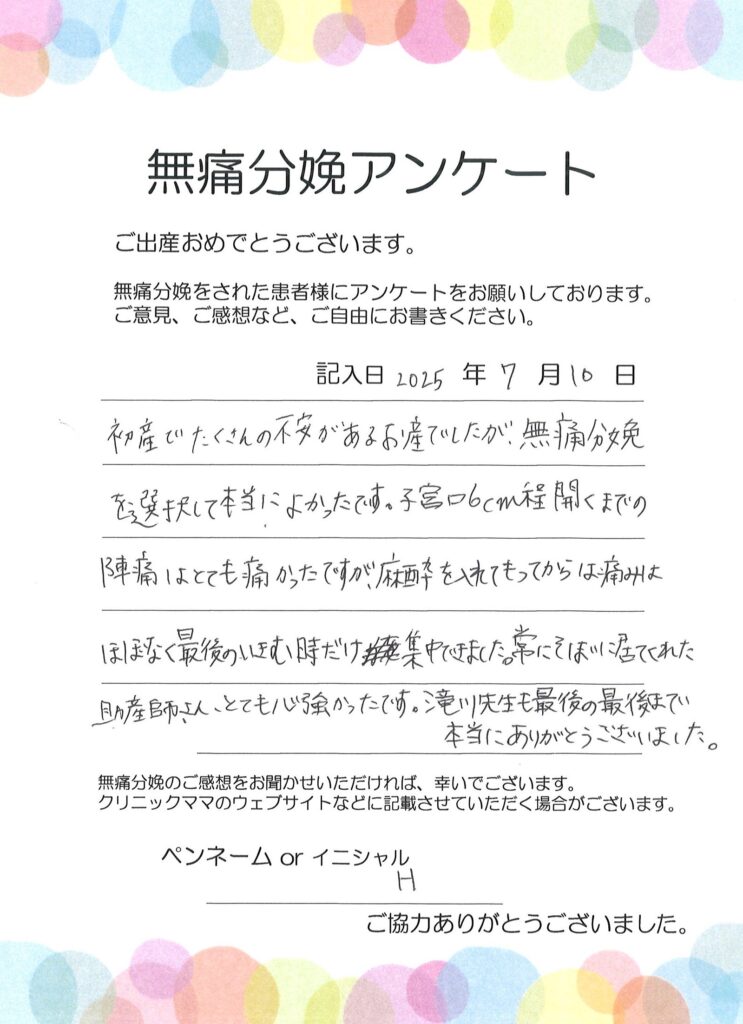 無痛分娩アンケート
ご出産おめでとうございます。
無痛分娩をされた患者様にアンケートをお願いしております。
ご意見、ご感想など、ご自由にお書きください。
記入日 2025 年 7 月 10 日
初産でたくさんの不安があるお産でしたが、無痛分娩
を選択して本当によかったです。子宮口6cm程開くまでの
陣痛はとても痛かったですが、麻酔を入れてもってからは痛みは
ほぼなく最後のいきむ時だけ集中できました。常にそばに居てくれた
助産師さん、とても心強かったです。滝川先生も最後の最後まで
本当にありがとうございました。
無痛分娩のご感想をお聞かせいただければ、幸いでございます。
クリニックママのウェブサイトなどに記載させていただく場合がございます。
ペンネーム or イニシャル
H
ご協力ありがとうございました。